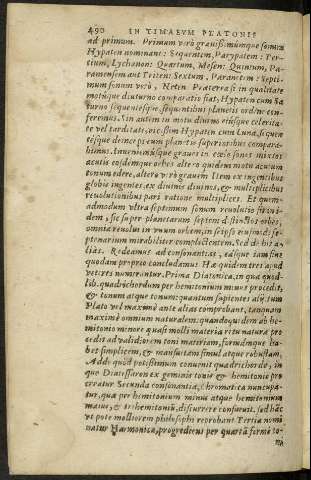 490 IN TIMAEVM PLATONIS
ad primum. Primum verò grauissimumque sonum
Hypaten nominant: Sequentem, Parypatem: Ter-
tium, Lychanon: Quartum, Mesen: Quintum, Pa-
ramensem aut Triten: Sextum, Paraneten: Septi-
mum sonum verò, Neten. Præterea si in qualitate
motusque diuturno comparatio fiat, Hypaten cum Sa
turno sequentesque, sequentibus planetis ordine con-
feremus. Sin autem in motu diurno eiusque celerita-
te vel tarditate, vicissim Hypaten cum Luna, sequen
tesque deinceps cum planetis superioribus compara-
bimus. Inuenimusque graues in cælo sonos mixtos
acutis eosdemque orbes altero quidem motu acutum
tonum edere, altero verò grauem. Item ex ingentibus
globis ingentes, ex diuinis diuinos, & multiplicibus
reuolutionibus pari ratione multiplices. Et quem-
admodum vltra septimum sonum reuolutio fit
dem, sic super planetarum septem distinctos orbes,
omnia reuolui in vnum orbem, in seipso eiusmodi se-
ptenarium mirabiliter complectentem. Sed de his a-
liàs. Redeamus ad consonantias, easque iam sine
quodam proprio concludamus. Harum quidem tres apud
veteres numerantur. Prima Diatonica, in qua quod-
lib. quadrichordum per hemitonium minus procedit,
& tonum atque tonum: quantum sapientes alij, tum
Plato vel maxime ante alias comprobant, tanquam
maximè omnium naturalem: quandoquidem ab he-
mitonio minore quasi molli materia ritu naturæ pro
cedit ad validiorem toni materiam, formamque ha-
bet simplicem, & mansuetam simul atque robustam.
Adde quòd potissimum conuenit quadrichordo, in
que Diatessaron ex geminis tonis & hemitonio pro
creatur. Secunda consonantia, chromatica nuncupa-
tur, quæ per hemitonium minus atque hemitonium
maius, & trihemitonium, discurrere consueuit. sed hæc
vt pote molliorem philosophi reprobant. Tertia nomi
natur Harmonica, progrediens per quartã fermè to-
ni